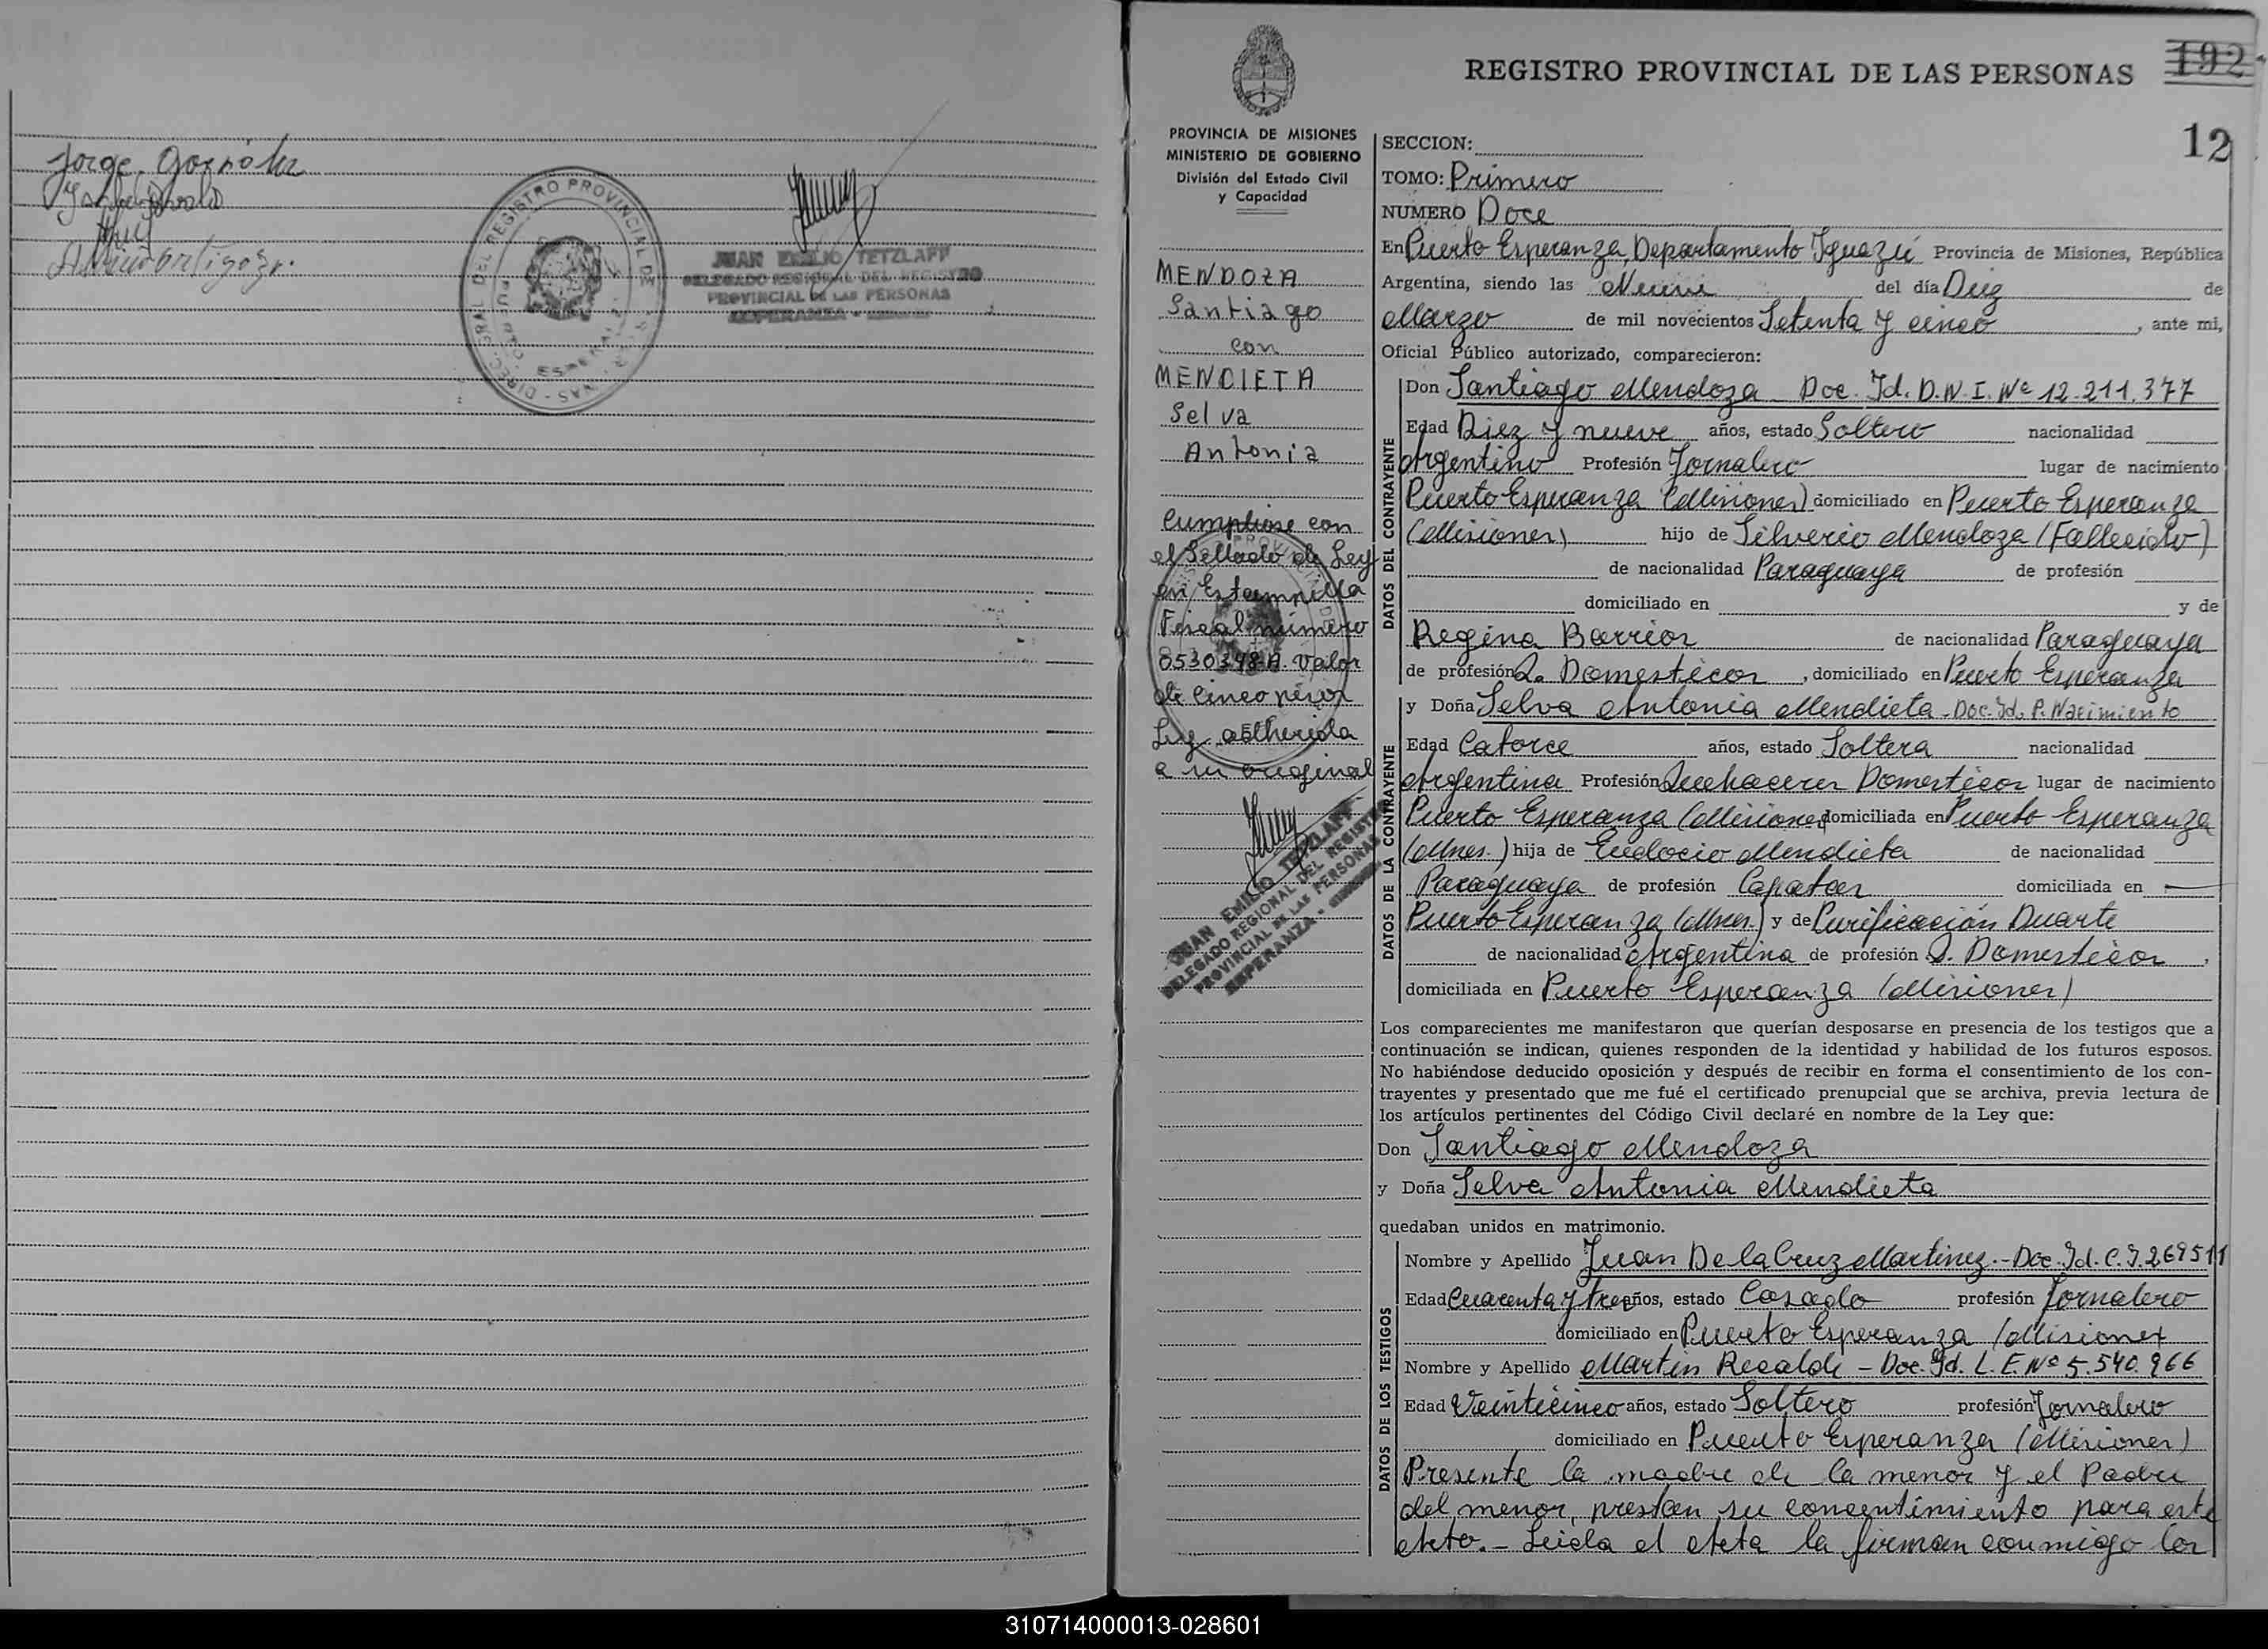 Jorge
REGISTRO PROVINCIAL
JUAN EMILIO TETZLAFF
DELEGADO REGIONAL DEL REGISTRO
PROVINCIAL DE LAS PERSONAS
ESPERANZA
REGISTRO PROVINCIAL DE LAS PERSONAS
192
12
PROVINCIA DE MISIONES
MINISTERIO DE GOBIERNO
División del Estado Civil
y Capacidad
MENDOZA
Santiago
con
MENDIETA
Selva
Antonia
Cumpliose con
el Sellado de Ley
en Estampilla
Fiscal número
0530348 A. Valor
de Cinco pesos
Ley adherida
a su original
JUAN EMILIO TETZLAFF
DELEGADO REGIONAL DEL REGISTRO
PROVINCIAL DE LAS PERSONAS
ESPERANZA -
SECCION:
TOMO: Primero
NUMERO Doce
En Puerto Esperanza Departamento Iguazú Provincia de Misiones, República
Argentina, siendo las Nueve del día Diez de
Marzo de mil novecientos Setenta y cinco, ante mi,
Oficial Público autorizado, comparecieron:
DATOS DEL CONTRAYENTE
Don Santiago Mendoza - Doc. Id. D.N.I. Nº 12.211.377
Edad Diez y nueve años, estado Soltero nacionalidad
Argentino Profesión Jornalero lugar de nacimiento
Puerto Esperanza (Misiones) domiciliado en Puerto Esperanza
(Misiones) hijo de Silverio Mendoza (Fallecido)
de nacionalidad Paraguaya de profesión
domiciliado en y de
Regina Barrios de nacionalidad Paraguaya
de profesión Q. Domesticos, domiciliado en Puerto Esperanza
DATOS DE LA CONTRAYENTE
y Doña Selva Antonia Mendieta - Doc. Id. P. Nacimiento
Edad Catorce años, estado Soltera nacionalidad
Argentina Profesión Quehaceres Domesticos lugar de nacimiento
Puerto Esperanza (Misiones) domiciliada en Puerto Esperanza
(Mnes.) hija de Eudocio Mendieta de nacionalidad
Paraguaya de profesión Capataz domiciliada en
Puerto Esperanza (Mnes.) y de Purificación Duarte
de nacionalidad Argentina de profesión Q. Domesticos,
domiciliada en Puerto Esperanza (Misiones)
Los comparecientes me manifestaron que querían desposarse en presencia de los testigos que a
continuación se indican, quienes responden de la identidad y habilidad de los futuros esposos.
No habiéndose deducido oposición y después de recibir en forma el consentimiento de los con-
trayentes y presentado que me fué el certificado prenupcial que se archiva, previa lectura de
los artículos pertinentes del Código Civil declaré en nombre de la Ley que:
Don Santiago Mendoza
y Doña Selva Antonia Mendieta
quedaban unidos en matrimonio.
DATOS DE LOS TESTIGOS
Nombre y Apellido Juan De la Cruz Martinez.- Doc. Id. C.I. 269511
Edad Cuarenta y tres años, estado Casado profesión Jornalero
domiciliado en Puerto Esperanza (Misiones
Nombre y Apellido Martin Recalde - Doc. Id. L.E. Nº 5.540.966
Edad Veinticinco años, estado Soltero profesión Jornalero
domiciliado en Puerto Esperanza (Misiones)
Presente la madre de la menor y el Padre
del menor, prestan su concentimiento para este
Acto.- Leida el Acta la firman conmigo los
310714000013-028601